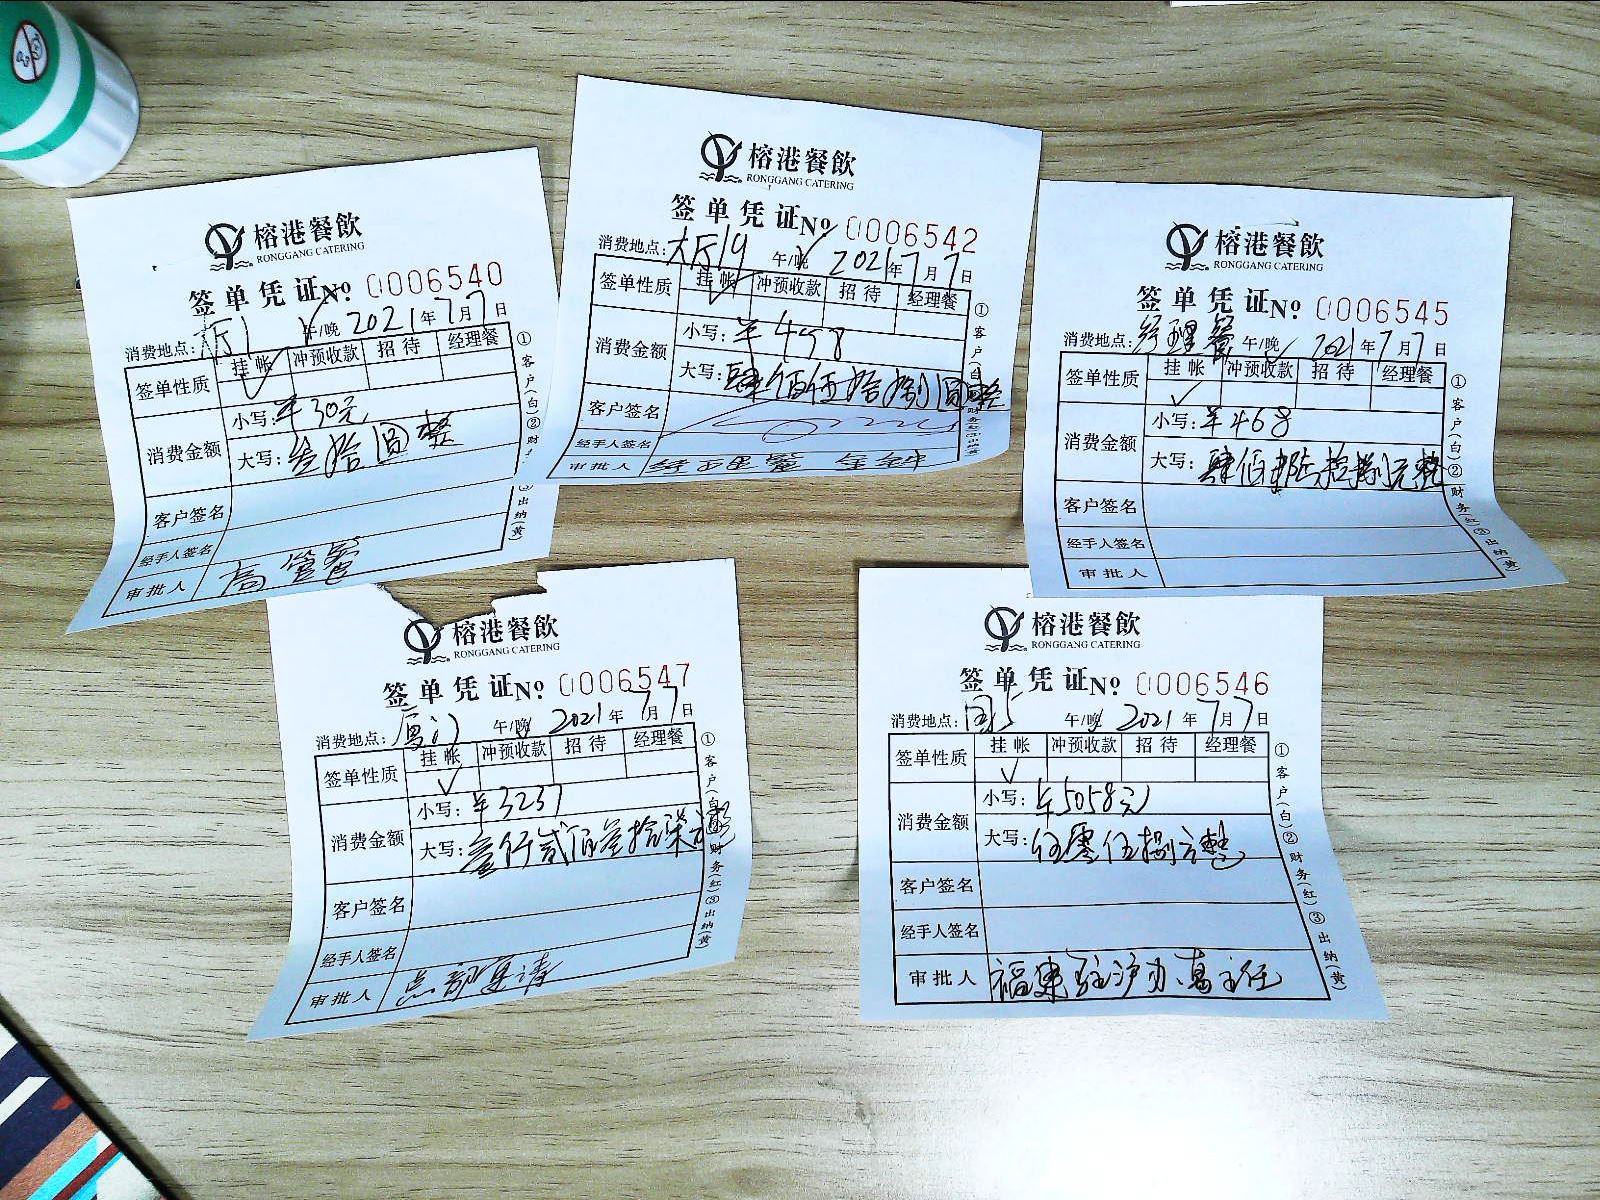 榕港餐飲
RONGGANG CATERING
签单凭证 No 0006540
消费地点: 大厅1 午/晚 2021年7月7日
签单性质 挂帐 冲预收款 招待 经理餐
消费金额
小写: ¥30元
大写: 叁拾圆整
客户签名
经手人签名
审批人 高管餐
①客户(白)②财 ③出纳(黄)
榕港餐飲
RONGGANG CATERING
签单凭证 No 0006542
消费地点: 大厅19 午/晚 2021年7月7日
签单性质 挂帐 冲预收款 招待 经理餐
消费金额
小写: ¥458
大写: 肆佰伍拾捌圆整
客户签名
经手人签名
审批人 经理餐
①客户(白) 财务(红)③出纳(黄)
榕港餐飲
RONGGANG CATERING
签单凭证 No 0006545
消费地点: 经理餐 午/晚 2021年7月7日
签单性质 挂帐 冲预收款 招待 经理餐
消费金额
小写: ¥468
大写: 肆佰陆拾捌元整
客户签名
经手人签名
审批人
①客户(白)②财务(红)③出纳(黄)
榕港餐飲
RONGGANG CATERING
签单凭证 No 0006547
消费地点: 厦门 午/晚 2021年7月7日
签单性质 挂帐 冲预收款 招待 经理餐
消费金额
小写: ¥3237
大写: 叁仟贰佰叁拾柒元整
客户签名
经手人签名
审批人 总部宴请
①客户(白) 财务(红)③出纳(黄)
榕港餐飲
RONGGANG CATERING
签单凭证 No 0006546
消费地点: 午/晚 2021年7月7日
签单性质 挂帐 冲预收款 招待 经理餐
消费金额
小写: ¥5058元
大写: 伍零伍捌元整
客户签名
经手人签名
审批人 福建驻沪办 主任
①客户(白)②财务(红)③出纳(黄)